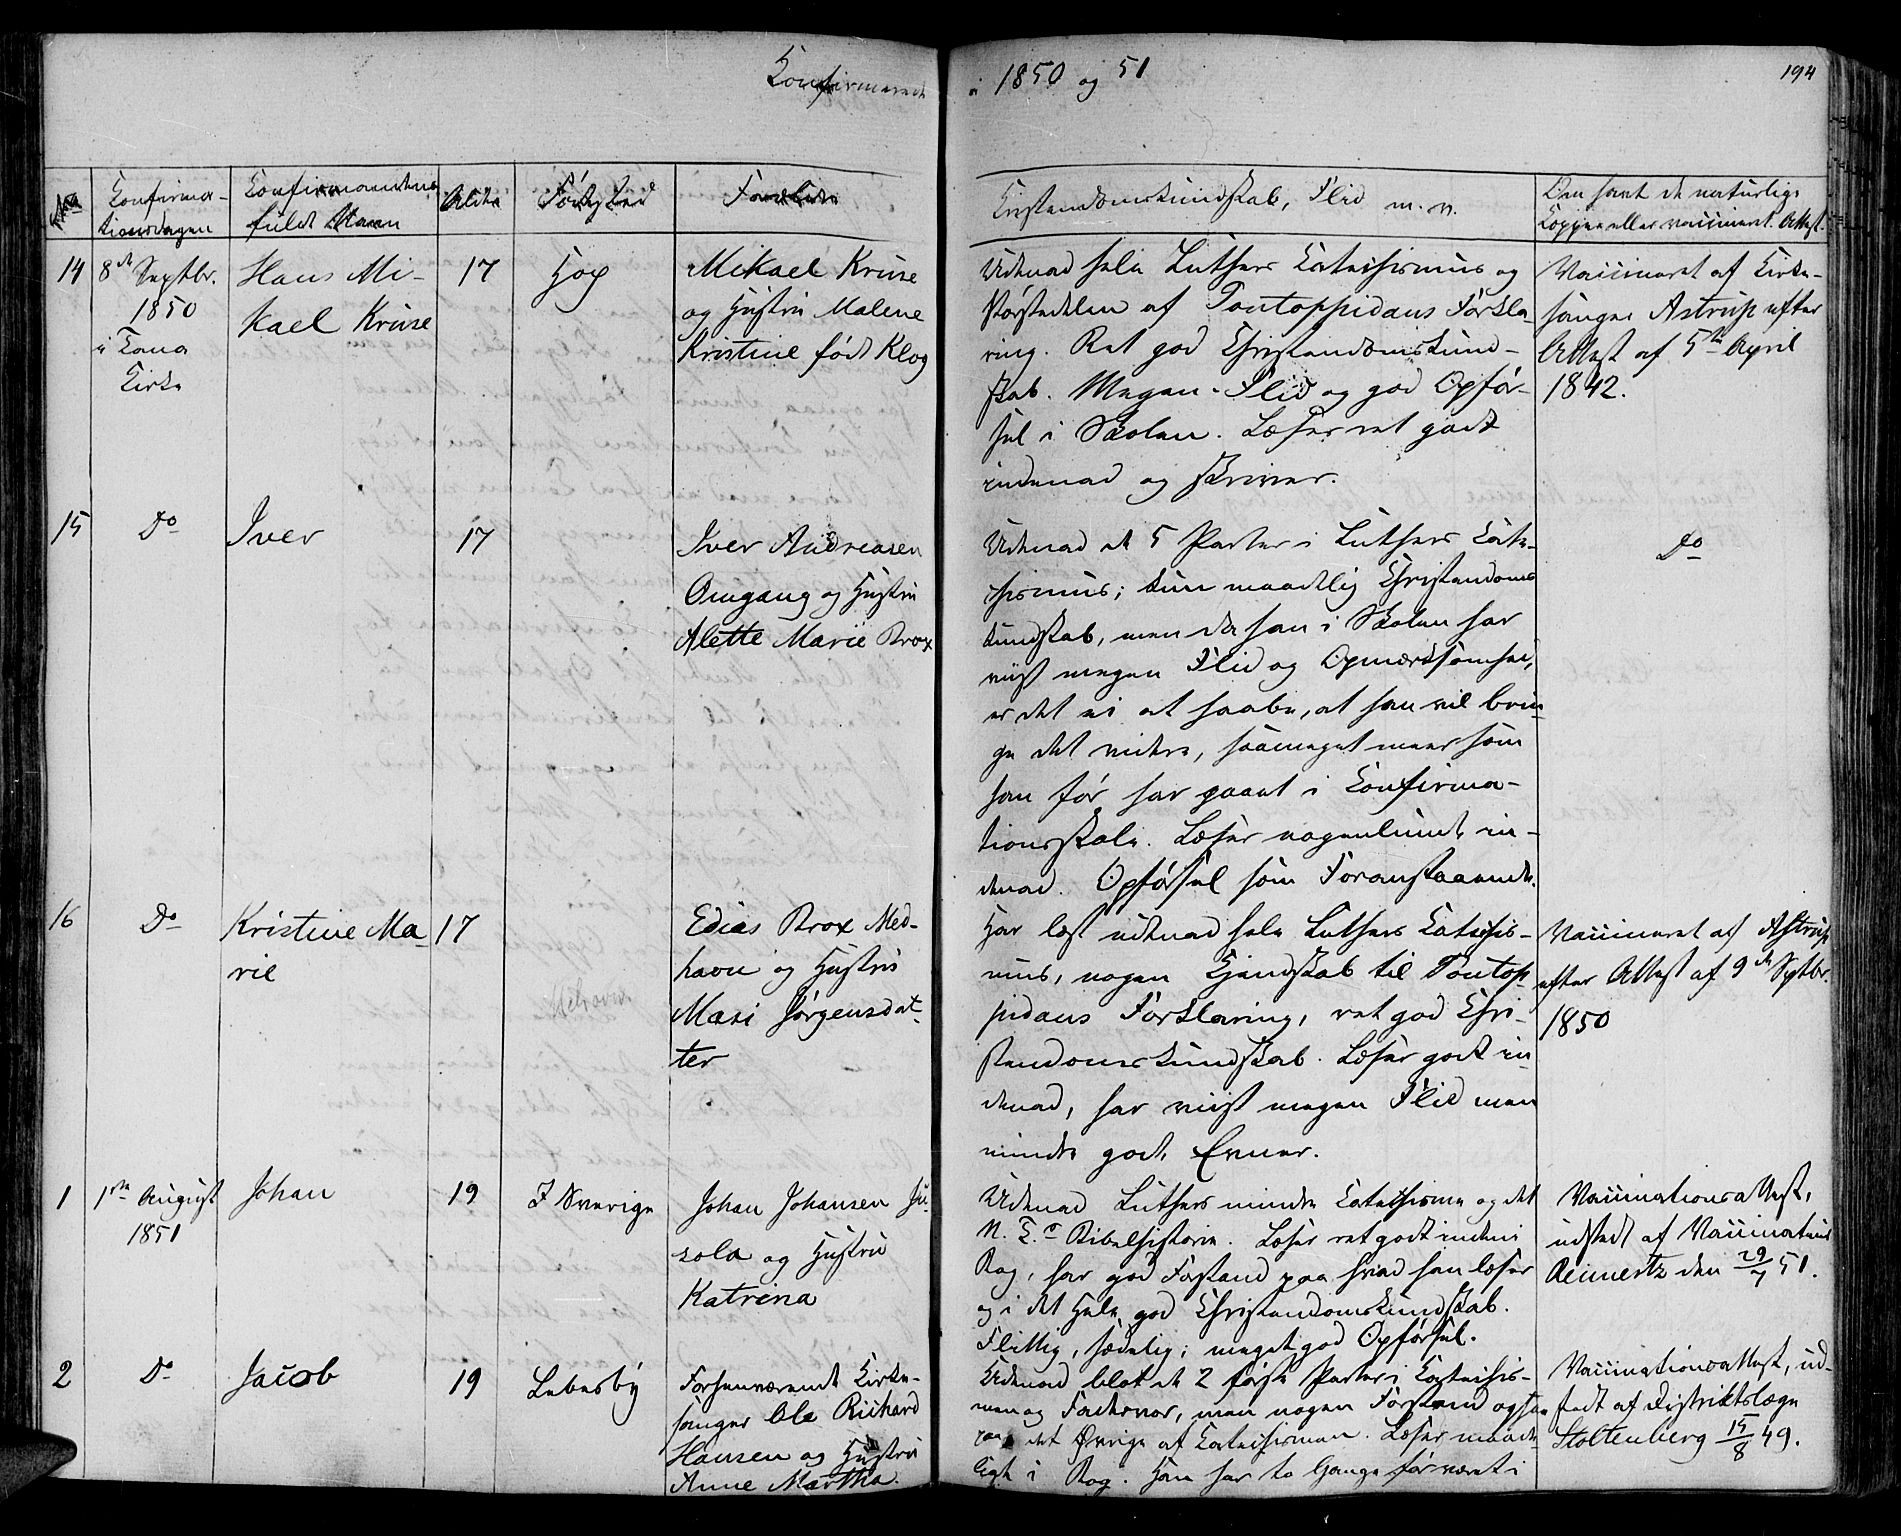 Confirmerede
i 1850 og 51
194
No
Confirma-
tionsdagen
Confirmandens
fulde Navn
Alder
Fødested
Forældre
Kristendomskundskab, Flid m. v.
Om havt de naturlige
Kopper eller vaccineret. Attest.
14
8de Septbr.
1850
i Tana
Kirke
Hans Mi-
kael Kruse
17
Hop
Mikael Kruse
og Hustru Malene
Kristine født Klog
Udenad hele Luthers Catechismus og
Størstedelen af Pontoppidans Forkla
ring. Ret god Christendomskund-
skab. Megen Flid og god Opfør-
sel i Skolen. Læser ret godt
indenad og skriver.
Vaccineret af Kirke-
sanger Astrup efter
Attest af 5te April
1842.
15
Do
Iver
17
Iver Andreasen
Omgang og Hustru
Alette Marie Brox
Udenad de 5 Parter i Luthers Cate-
chismus; kun maadelig Christendoms
kundskab, men da han i Skolen har
viist megen Flid og Opmærksomhed,
er det at haabe, at han vil brin-
ge det videre, saameget meer som
han før har gaaet i Confirma-
tionsskole. Læser nogenlunde in-
denad. Opførsel som Foranstaaende.
Do
16
Do
Kristine Ma
rie
17
Mehavn
Edias Brox Med-
havn og Hustru
Mari Jørgensdat-
ter
Har læst udenad hele Luthers Catechis-
mus, nogen Kjendskab til Pontop-
pidans Forklaring, ret god Chri-
stendomskundskab. Læser godt in-
denad, har viist megen Flid men
mindre gode Evner.
Vaccineret af Astrup
efter Attest af 9de Septbr.
1850
1
1ste August
1851
Johan
19
I Sverige
Johan Johansen Ju-
sola og Hustru
Katrina
Udenad Luthers mindre Catechisme og det
N. T.s Bibelhistorie. Læser ret godt inden i
Bog, har god Forstand paa hvad han læser
og i det Hele god Christendomskundskab.
Flittig, sædelig; meget god Opførsel.
Vaccinationsattest,
udstedt af Vaccinateur
Reinertz den 29/7 51.
2
Do
Jacob
19
Lebesby
Forhenværende Kirke-
sanger Ole Richard
Hansen og Hustru
Anne Martha.
Udenad blot de 2 første Parter i Catechis-
men og Fadervor, men nogen Forstand ogsaa
paa det Øvrige af Catechismen. Læser maade-
ligt i Bog. Han har to Gange før været i
Vaccinationsattest, ud-
stedt af Distriktslæge
Stoltenberg 15/8 49.